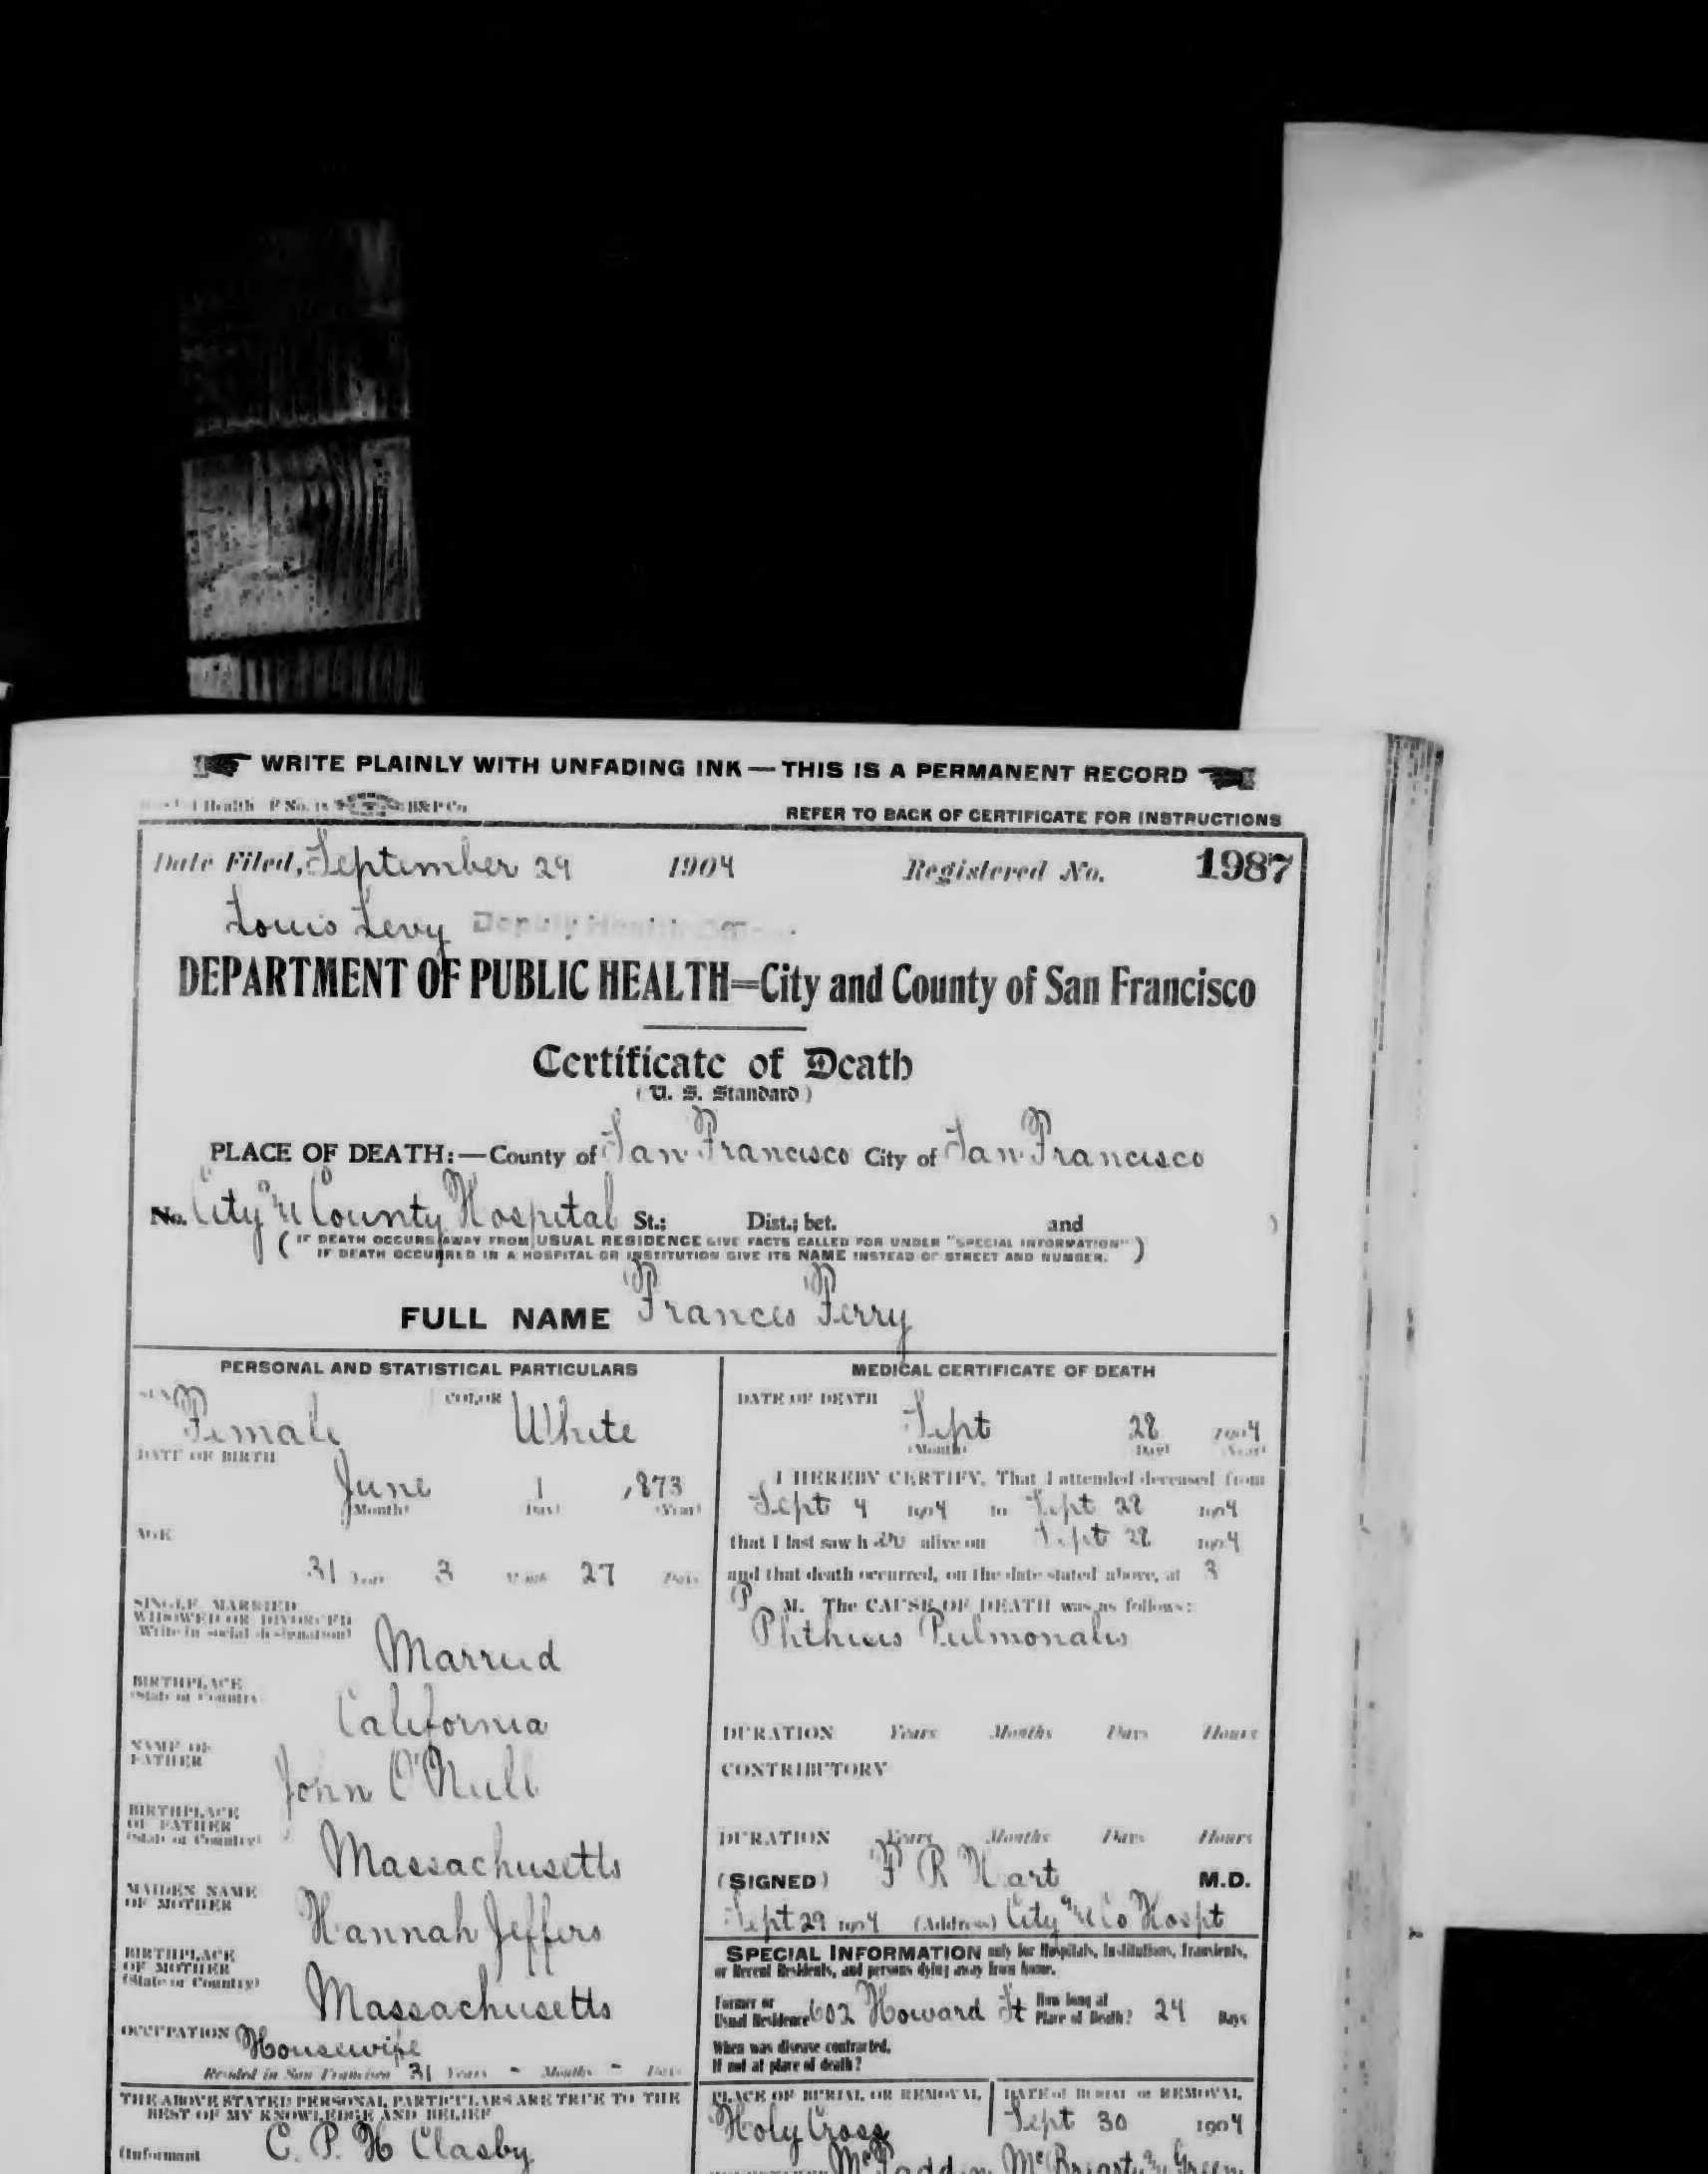 WRITE PLAINLY WITH UNFADING INK—THIS IS A PERMANENT RECORD
Health P No. B&P Co.
REFER TO BACK OF CERTIFICATE FOR INSTRUCTIONS
Date Filed, September 29 1904 Registered No. 1987
Louis Levy Deputy Health Officer
DEPARTMENT OF PUBLIC HEALTH=City and County of San Francisco
Certificate of Death
(U. S. Standard)
PLACE OF DEATH:—County of San Francisco City of San Francisco
No. City and County Hospital St.; Dist.; bet. and )
(IF DEATH OCCURS AWAY FROM USUAL RESIDENCE GIVE FACTS CALLED FOR UNDER "SPECIAL INFORMATION"
IF DEATH OCCURRED IN A HOSPITAL OR INSTITUTION GIVE ITS NAME INSTEAD OF STREET AND NUMBER.)
FULL NAME Frances Ferry
PERSONAL AND STATISTICAL PARTICULARS
SEX Female COLOR White
DATE OF BIRTH
June 1 1873
(Month) (Day) (Year)
AGE
31 Years 3 Months 27 Days
SINGLE, MARRIED
WIDOWED OR DIVORCED
(Write in social designation)
Married
BIRTHPLACE
(State or Country)
California
NAME OF
FATHER
John O'Neill
BIRTHPLACE
OF FATHER
(State or Country)
Massachusetts
MAIDEN NAME
OF MOTHER
Hannah Jeffers
BIRTHPLACE
OF MOTHER
(State or Country)
Massachusetts
OCCUPATION Housewife
Resided in San Francisco 31 Years - Months - Days
THE ABOVE STATED PERSONAL PARTICULARS ARE TRUE TO THE
BEST OF MY KNOWLEDGE AND BELIEF
(Informant C. P. H Clasby
MEDICAL CERTIFICATE OF DEATH
DATE OF DEATH
Sept 28 1904
(Month) (Day) (Year)
I HEREBY CERTIFY, That I attended deceased from
Sept 4 1904 to Sept 28 1904
that I last saw her alive on Sept 28 1904
and that death occurred, on the date stated above, at 3
P M. The CAUSE OF DEATH was as follows:
Phthisis Pulmonalis
DURATION Years Months Days Hours
CONTRIBUTORY
DURATION Years Months Days Hours
(SIGNED) F R Hart M.D.
Sept 29 1904 (Address) City and Co Hospt
SPECIAL INFORMATION only for Hospitals, Institutions, Transients,
or Recent Residents, and persons dying away from home.
Former or
Usual Residence 602 Howard St How long at
Place of Death? 24 Days
When was disease contracted,
If not at place of death?
PLACE OF BURIAL OR REMOVAL
Holy Cross
DATE of BURIAL or REMOVAL
Sept 30 1904
McFadden McBrearty and Green